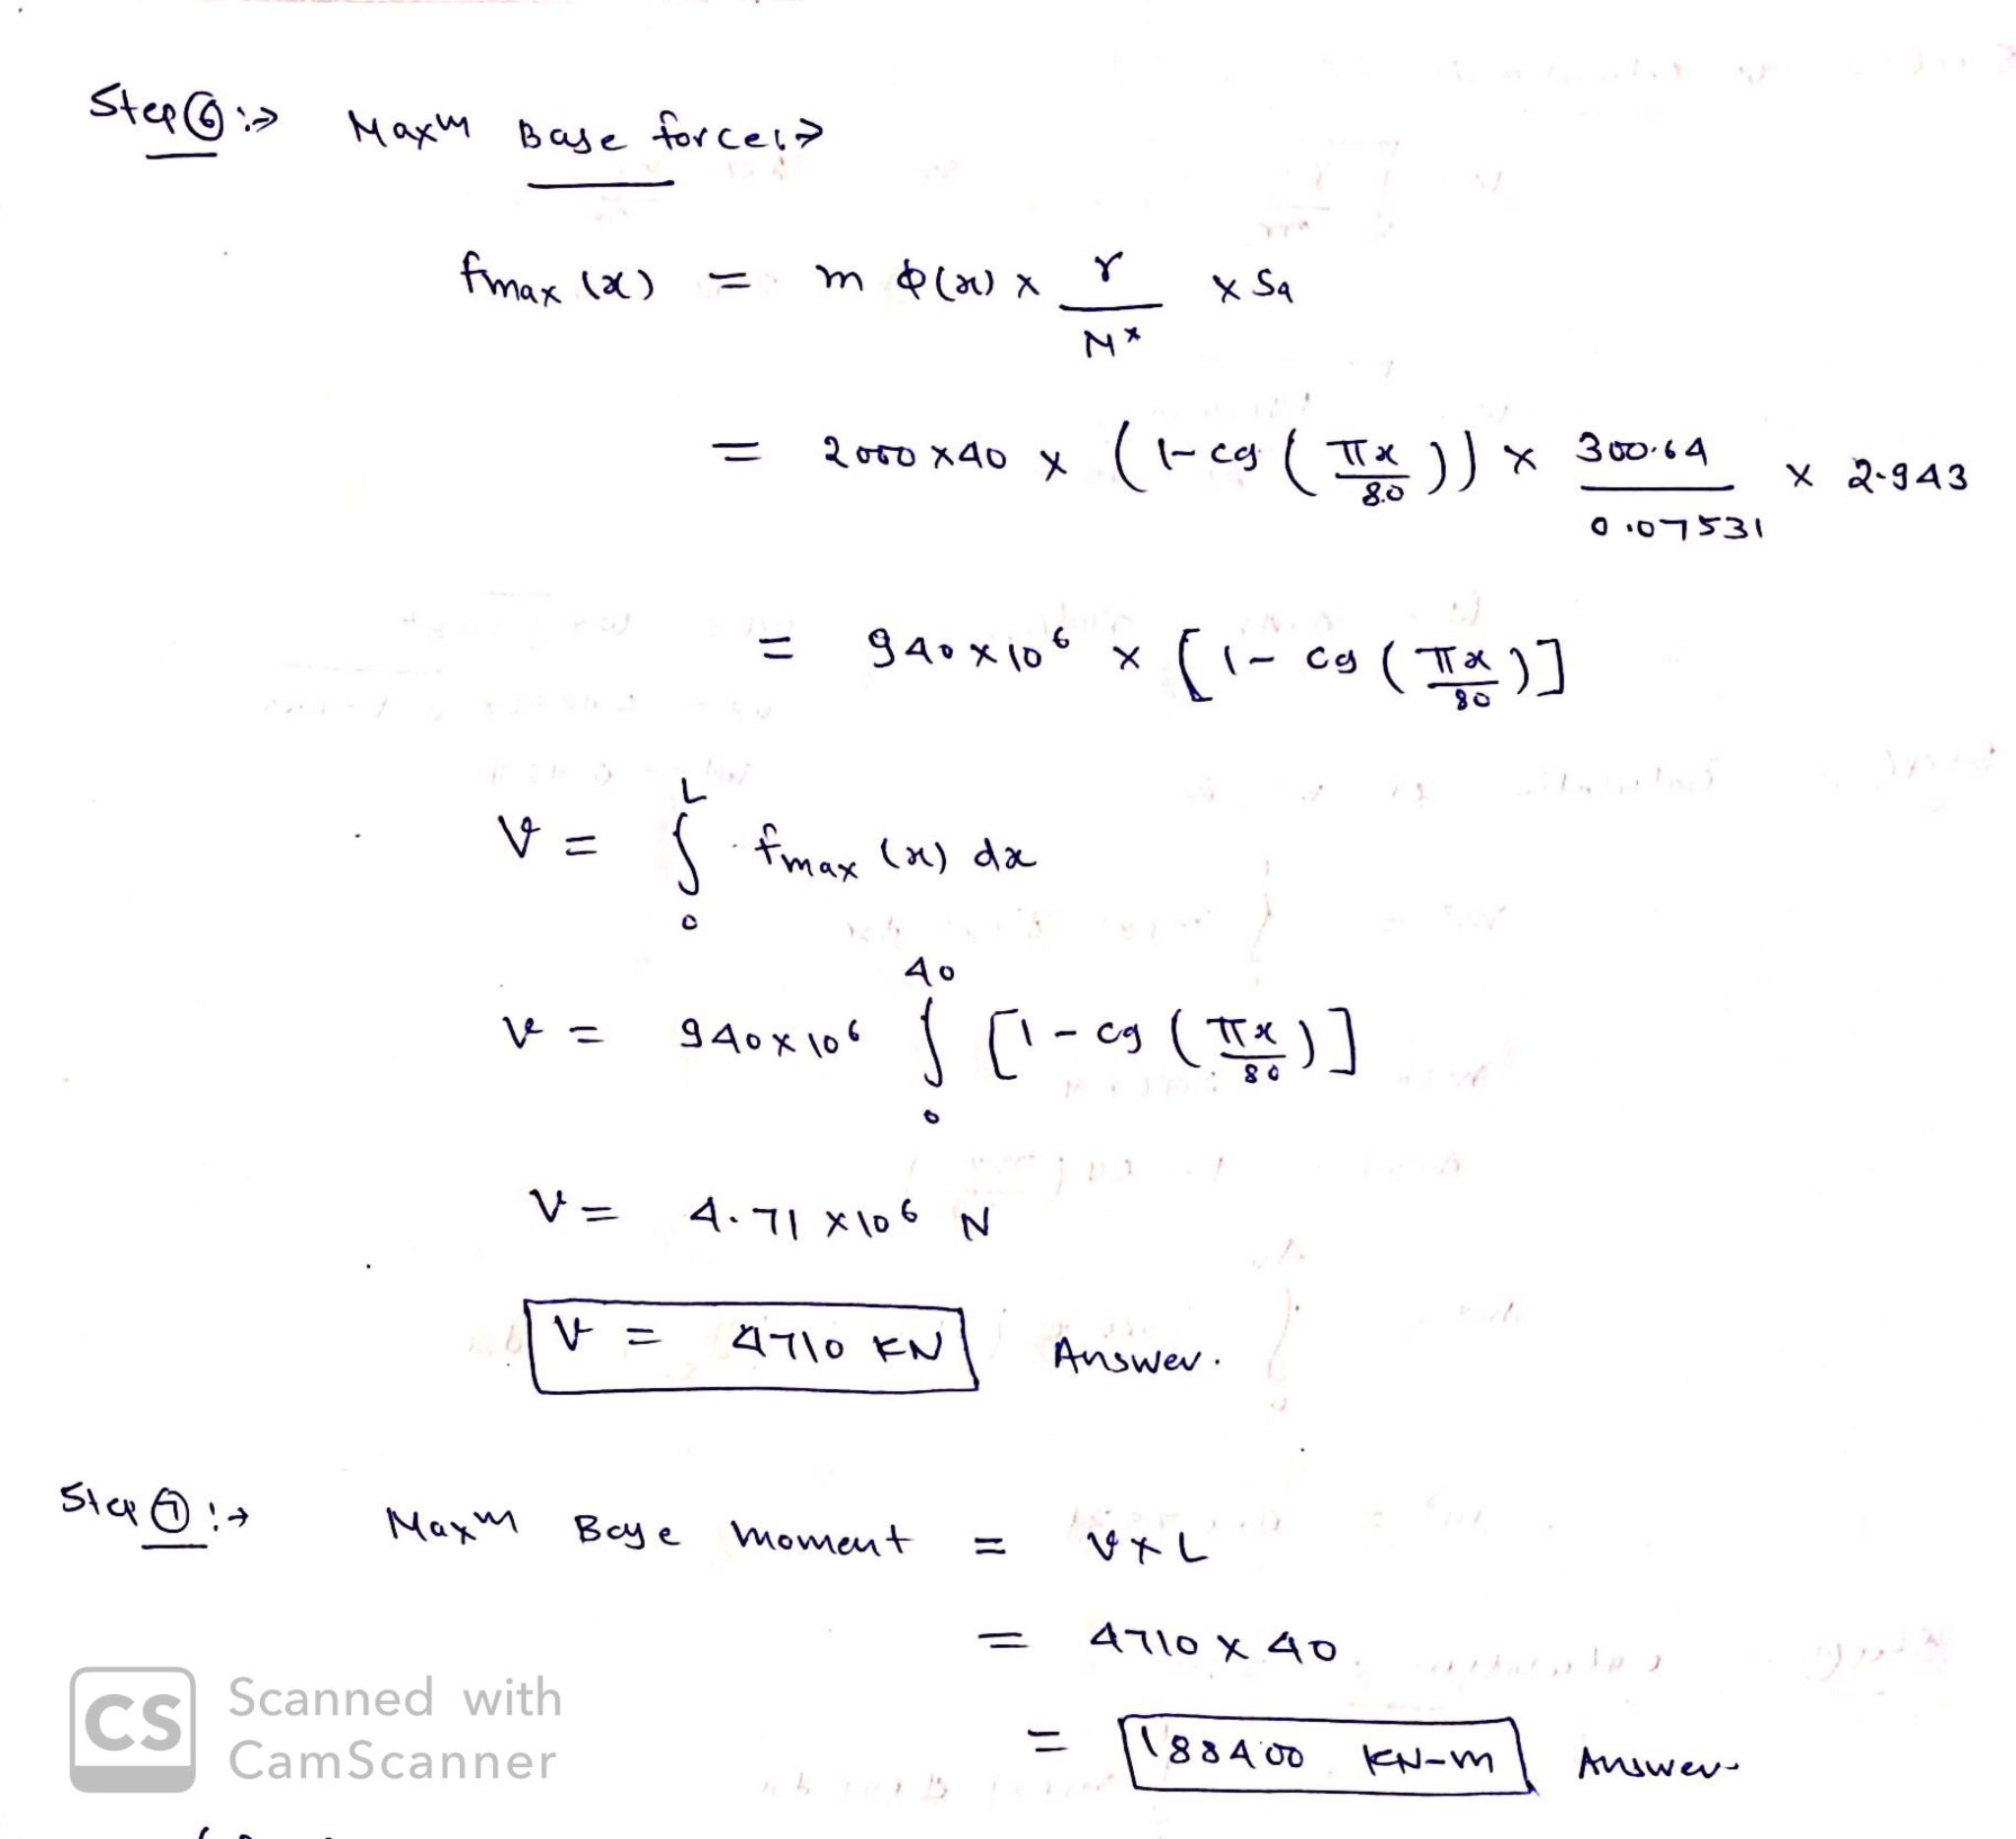 Step ⑥ :→ Maxm Base force:→
fmax (x) = m ϕ(x) × r / M* × Sa
= 2000 × 40 × (1 - cos (πx/80)) × 300.64 / 0.07531 × 2.943
= 940 × 10⁶ × [1 - cos (πx/80)]
V = ∫₀ᴸ fmax (x) dx
V = 940 × 10⁶ ∫₀⁴⁰ [1 - cos (πx/80)]
V = 4.71 × 10⁶ N
V = 4710 KN Answer.
Step ⑦ :→ Maxm Base moment = V × L
= 4710 × 40
= 188400 KN-m Answer
CS Scanned with
CamScanner